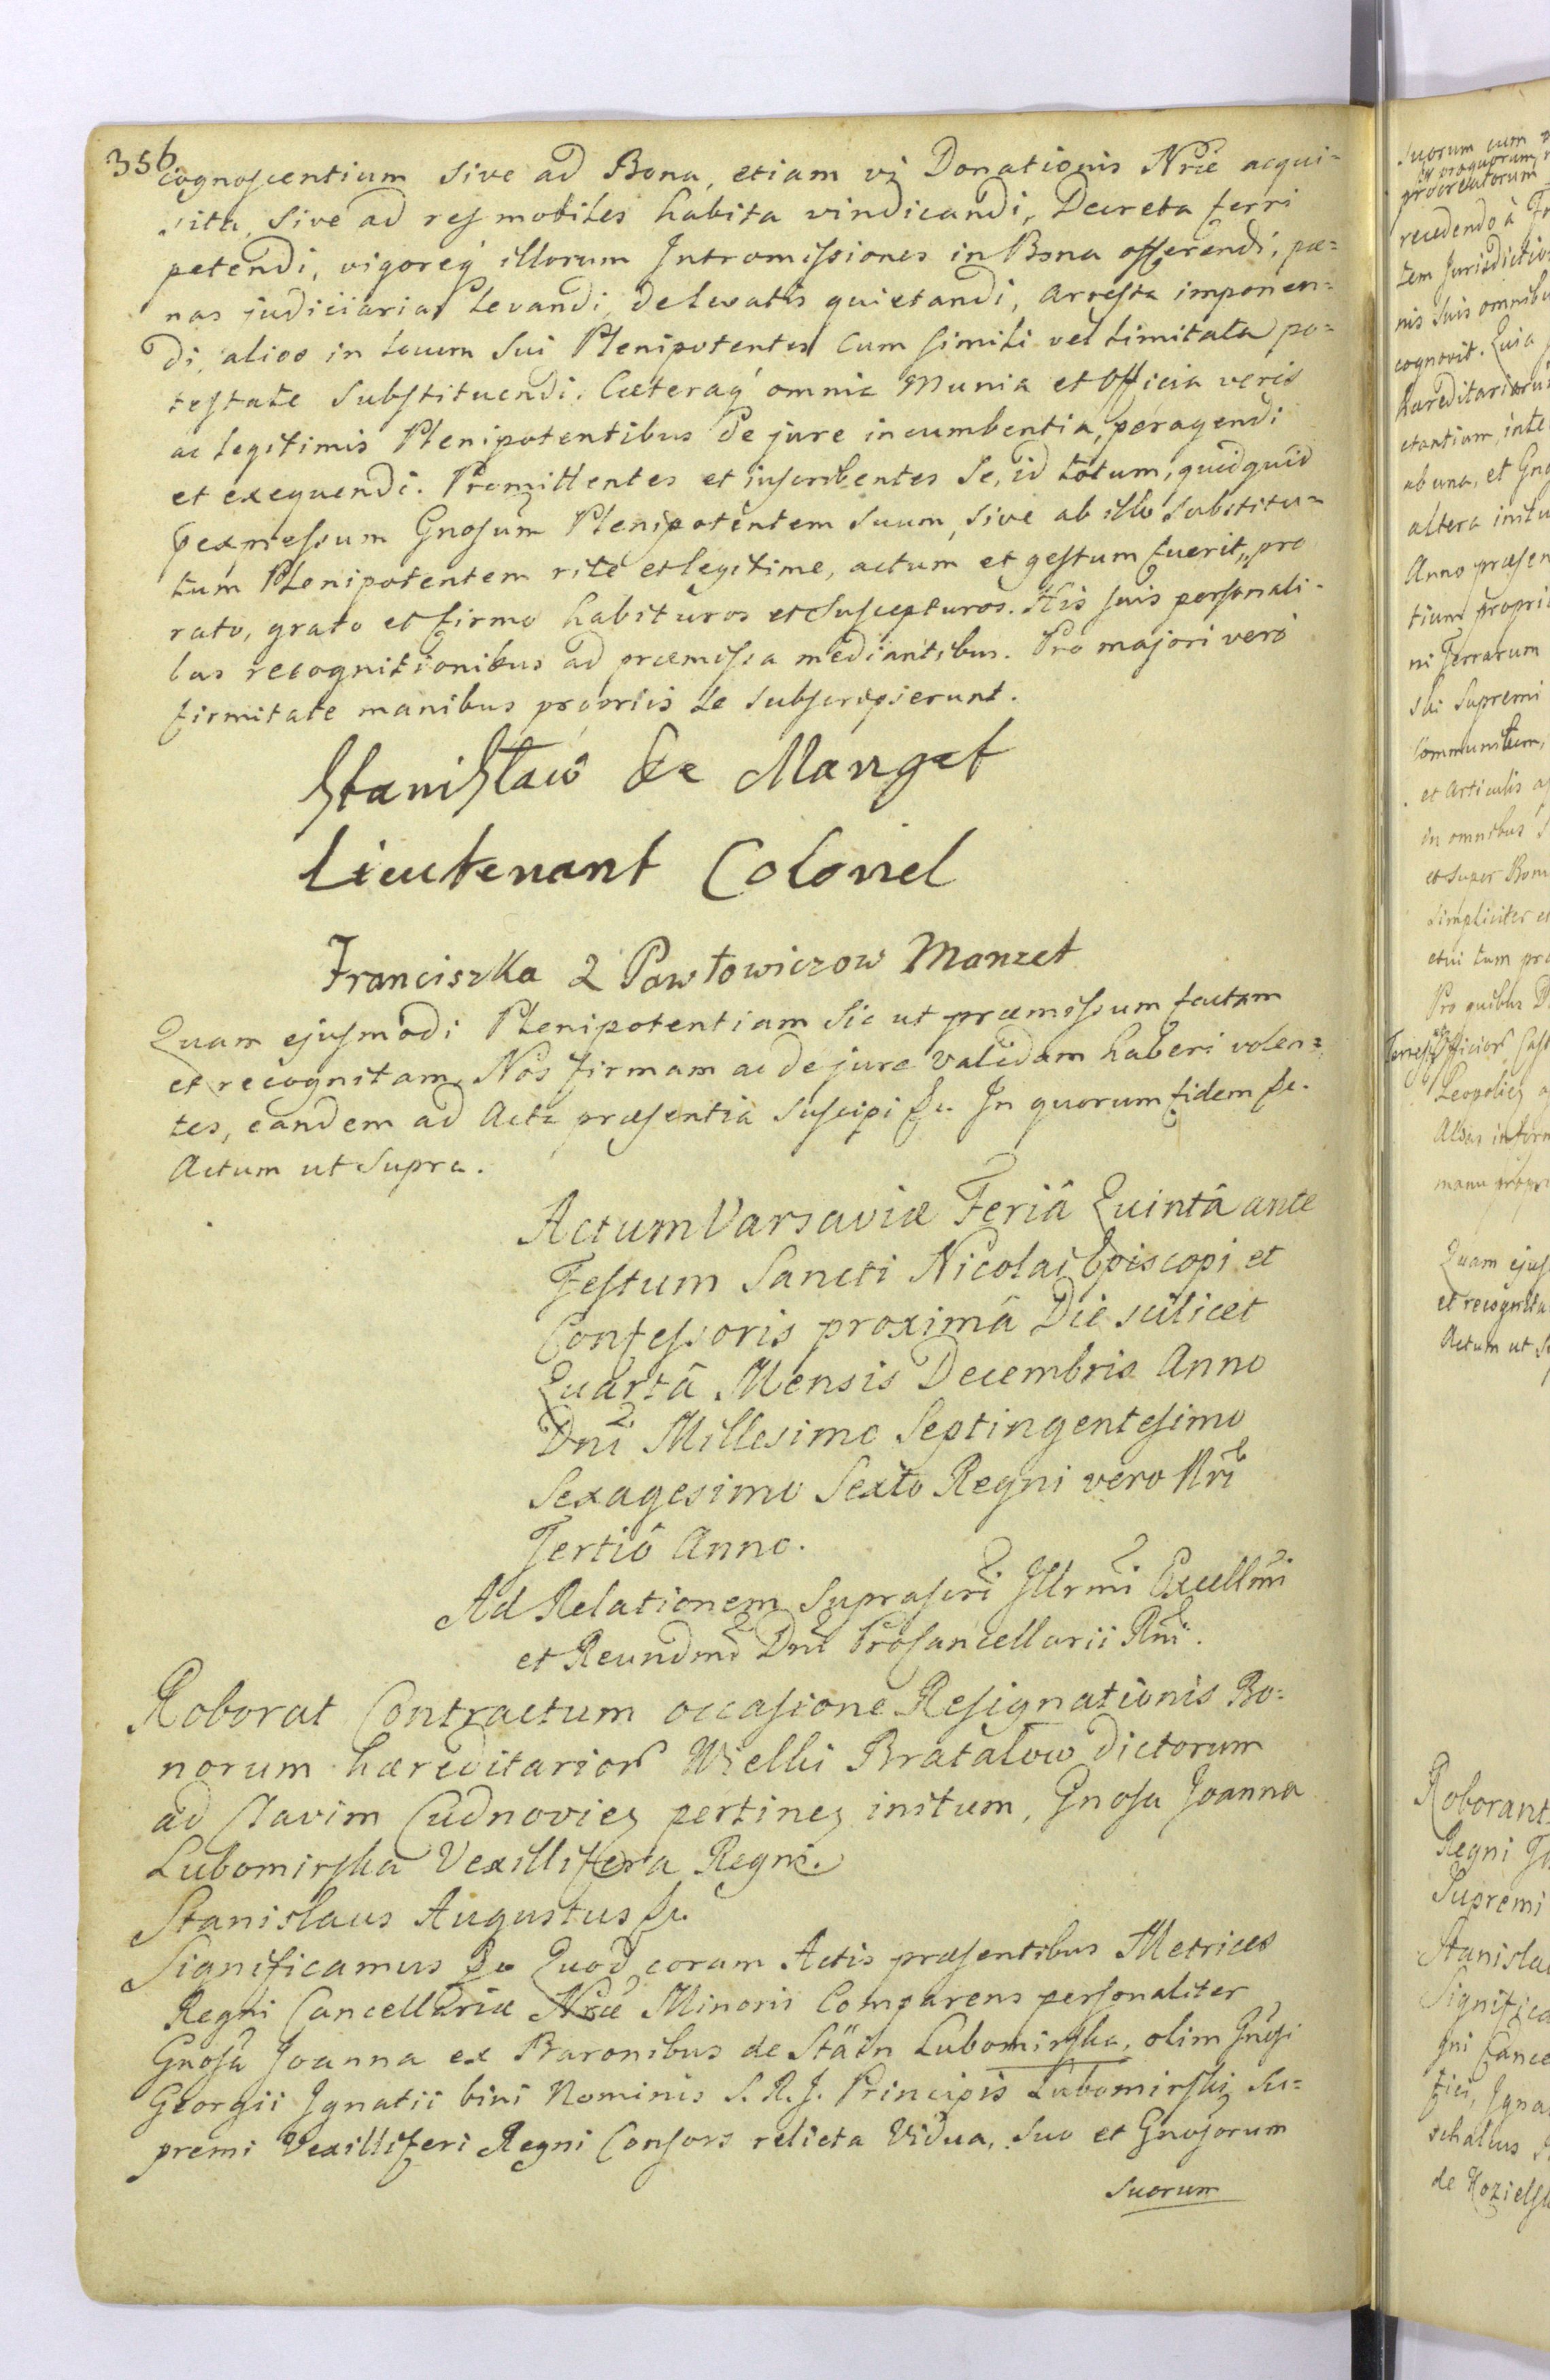 356
cognoscentium sive ad Bona, etiam vi Donationis Nrae acqui-
sita, sive ad res mobiles habita vindicandi, Decreta ferri
petendi, vigoreq illorum Intromissiones in Bona offerendi, pae-
nas judiciarias levandi, de levatis quietandi, arresta imponen-
di, alios in locum sui Plenipotentes cum simili vel limitata po-
testate substituendi. Caeteraq omnia munia et officia veris
ac legitimis Plenipotentibus de jure incumbentia, peragendi
et exequendi. Promittentes et inscribentes se, id totum, quidquid
p expressum Gnosum Plenipotentem suum, sive ab illo substitu-
tum Plenipotentem rite et legitime, actum et gestum fuerit, pro
rato, grato et firmo habituros et suscepturos. His suis personali-
bus recognitionibus ad praemissa mediantibus. Pro majori vero
firmitate manibus propriis se subscripserunt.
Stanisław de Manget
Lieutenant Colonel
Franciszka z Pawłowiczow Manzet
Quam ejusmodi Plenipotentiam sic ut praemissum factam
et recognitam, Nos firmam ac de jure validam haberi volen-
tes, eandem ad Acta praesentia suscipi &c. In quorum fidem &c.
Actum ut supra.
Actum Varsaviae Feriâ Quintâ ante
Festum Sancti Nicolai Episcopi et
Confessoris proximâ Die scilicet
Quartâ Mensis Decembris Anno
Dni Millesimo Septingentesimo
Sexagesimo Sexto Regni vero Nri
Tertiô Anno.
Ad Relationem suprascri Illrmi Excellmi
et Reundmi Dni Procancellarii Rni.
Roborat Contractum occasione Resignationis Bo-
norum haereditarior Wielki Bratalow dictorum
ad Clavim Cudnovien pertinen initum, Gnosa Joanna
Lubomirska Vexillifera Regni.
Stanislaus Augustus &c.
Significamus &c Quod coram Actis praesentibus Metrices
Regni Cancellariae Nrae Minoris Comparens personaliter
Gnosa Joanna ex Baronibus de Stäin Lubomirska, olim Gnosi
Georgii Ignatii bini Nominis S. R. J. Principis Lubomirski, Su-
premi Vexilliferi Regni Consors relicta Vidua, suo et Gnosorum
suorum
suorum cum
procreatorum
recedendo à
tem Jurisdictio
nis suis omnibu
cognovit. Quia
haereditarioru
ctantium, inte
ab una, et Gno
altera initu
Anno praesen
tium propri
ni Terrarum
Supremi
Communitum,
et Articulis
in omnibus
et super Bon
simpliciter et
etui tum pra
Pro quibus
Leopolien
manu propri
Quam ejus
et recognita
Actum ut
Roborant
Regni
Supremi
Stanisla
Significa
gni Cance
tici, Igna
schalcus
de Kozielsk